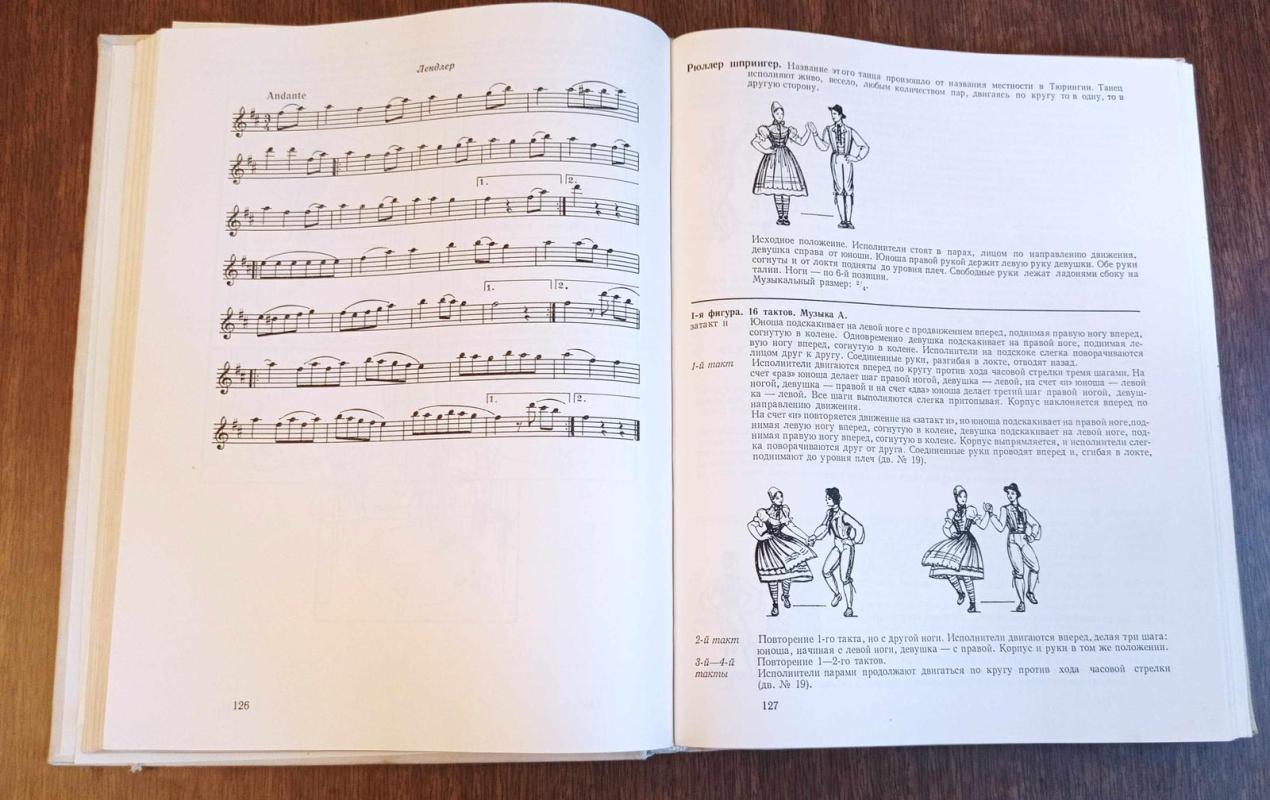 Лендлер
Andante
1.
2.
1.
2.
1.
2.
126
Рюллер шпрингер. Название этого танца произошло от названия местности в Тюрингии. Танец
исполняют живо, весело, любым количеством пар, двигаясь по кругу то в одну, то в
другую сторону.
Исходное положение. Исполнители стоят в парах, лицом по направлению движения,
девушка справа от юноши. Юноша правой рукой держит левую руку девушки. Обе руки
согнуты и от локтя подняты до уровня плеч. Свободные руки лежат ладонями сбоку на
талии. Ноги — по 6-й позиции.
Музыкальный размер: 2/4.
1-я фигура. 16 тактов. Музыка А.
затакт и Юноша подскакивает на левой ноге с продвижением вперед, поднимая правую ногу вперед,
согнутую в колене. Одновременно девушка подскакивает на правой ноге, поднимая ле-
вую ногу вперед, согнутую в колене. Исполнители на подскоке слегка поворачиваются
лицом друг к другу. Соединенные руки, разгибая в локте, отводят назад.
1-й такт Исполнители двигаются вперед по кругу против хода часовой стрелки тремя шагами. На
счет «раз» юноша делает шаг правой ногой, девушка — левой, на счет «и» юноша — левой
ногой, девушка — правой и на счет «два» юноша делает третий шаг правой ногой, девуш-
ка — левой. Все шаги выполняются слегка притопывая. Корпус наклоняется вперед по
направлению движения.
На счет «и» повторяется движение на «затакт и», но юноша подскакивает на правой ноге, под-
нимая левую ногу вперед, согнутую в колене, девушка подскакивает на левой ноге, под-
нимая правую ногу вперед, согнутую в колене. Корпус выпрямляется, и исполнители слег-
ка поворачиваются друг от друга. Соединенные руки проводят вперед и, сгибая в локте,
поднимают до уровня плеч (дв. № 19).
2-й такт Повторение 1-го такта, но с другой ноги. Исполнители двигаются вперед, делая три шага:
юноша, начиная с левой ноги, девушка — с правой. Корпус и руки в том же положении.
3-й—4-й Повторение 1—2-го тактов.
такты Исполнители парами продолжают двигаться по кругу против хода часовой стрелки
(дв. № 19).
127